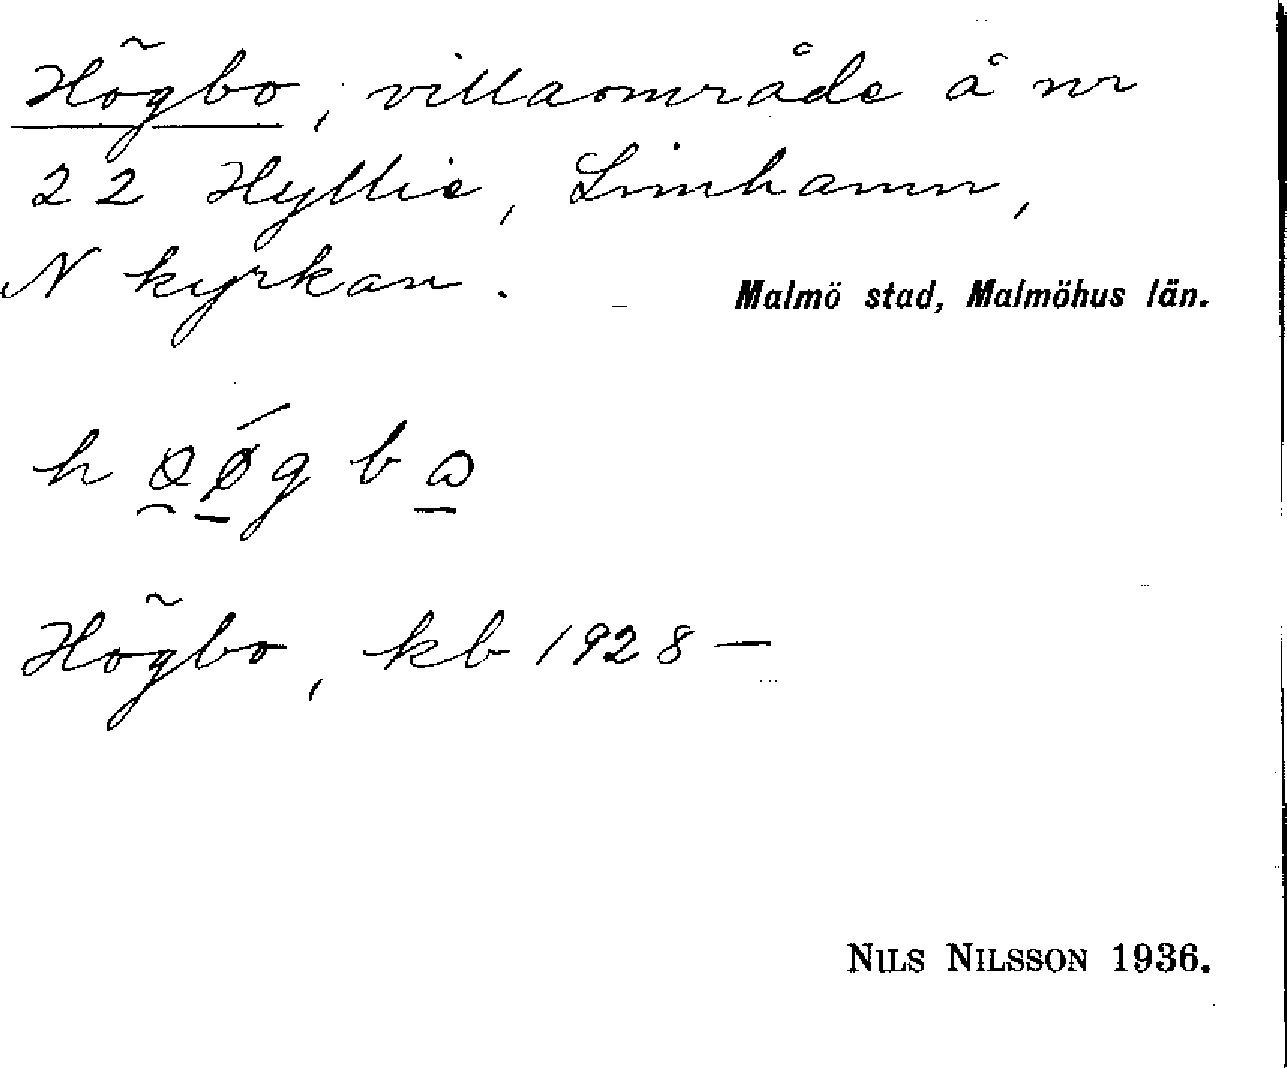 Högbo, villaområde å nr
22 Hyllie, Limhamn,
N kyrkan. Malmö stad, Malmöhus län.
Högbo, kb 1928 —
NILS NILSSON 1936.